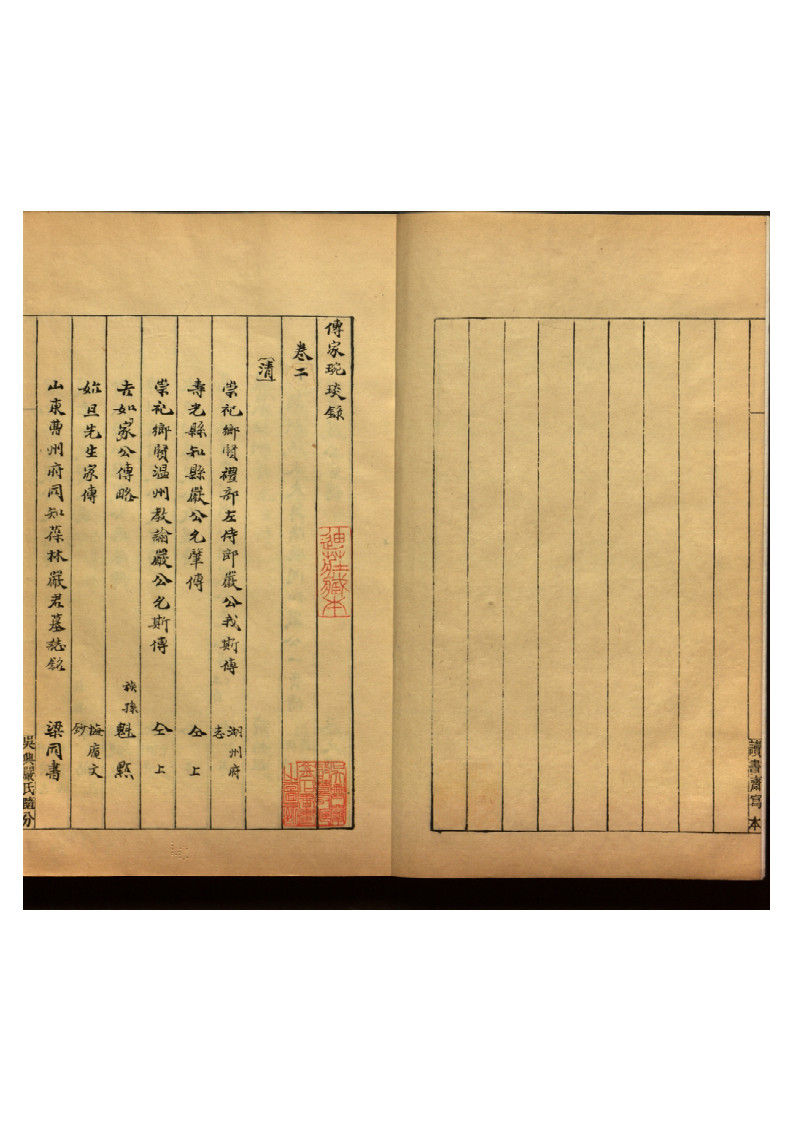 傳家琬琰錄
卷二
清
崇祀鄉賢禮部左侍郎嚴公我斯傳 湖州府志
壽光縣知縣嚴公允肇傳 仝上
崇祀鄉賢温州教諭嚴公允斯傳 仝上
去如家公傳略 族孫魁 㸃
妳旦先生家傳 梅廣文鈔
山東曹州府同知葆林嚴君墓誌銘 梁同書
吳興嚴氏隨分
讀書齋寫本
迪莊藏本